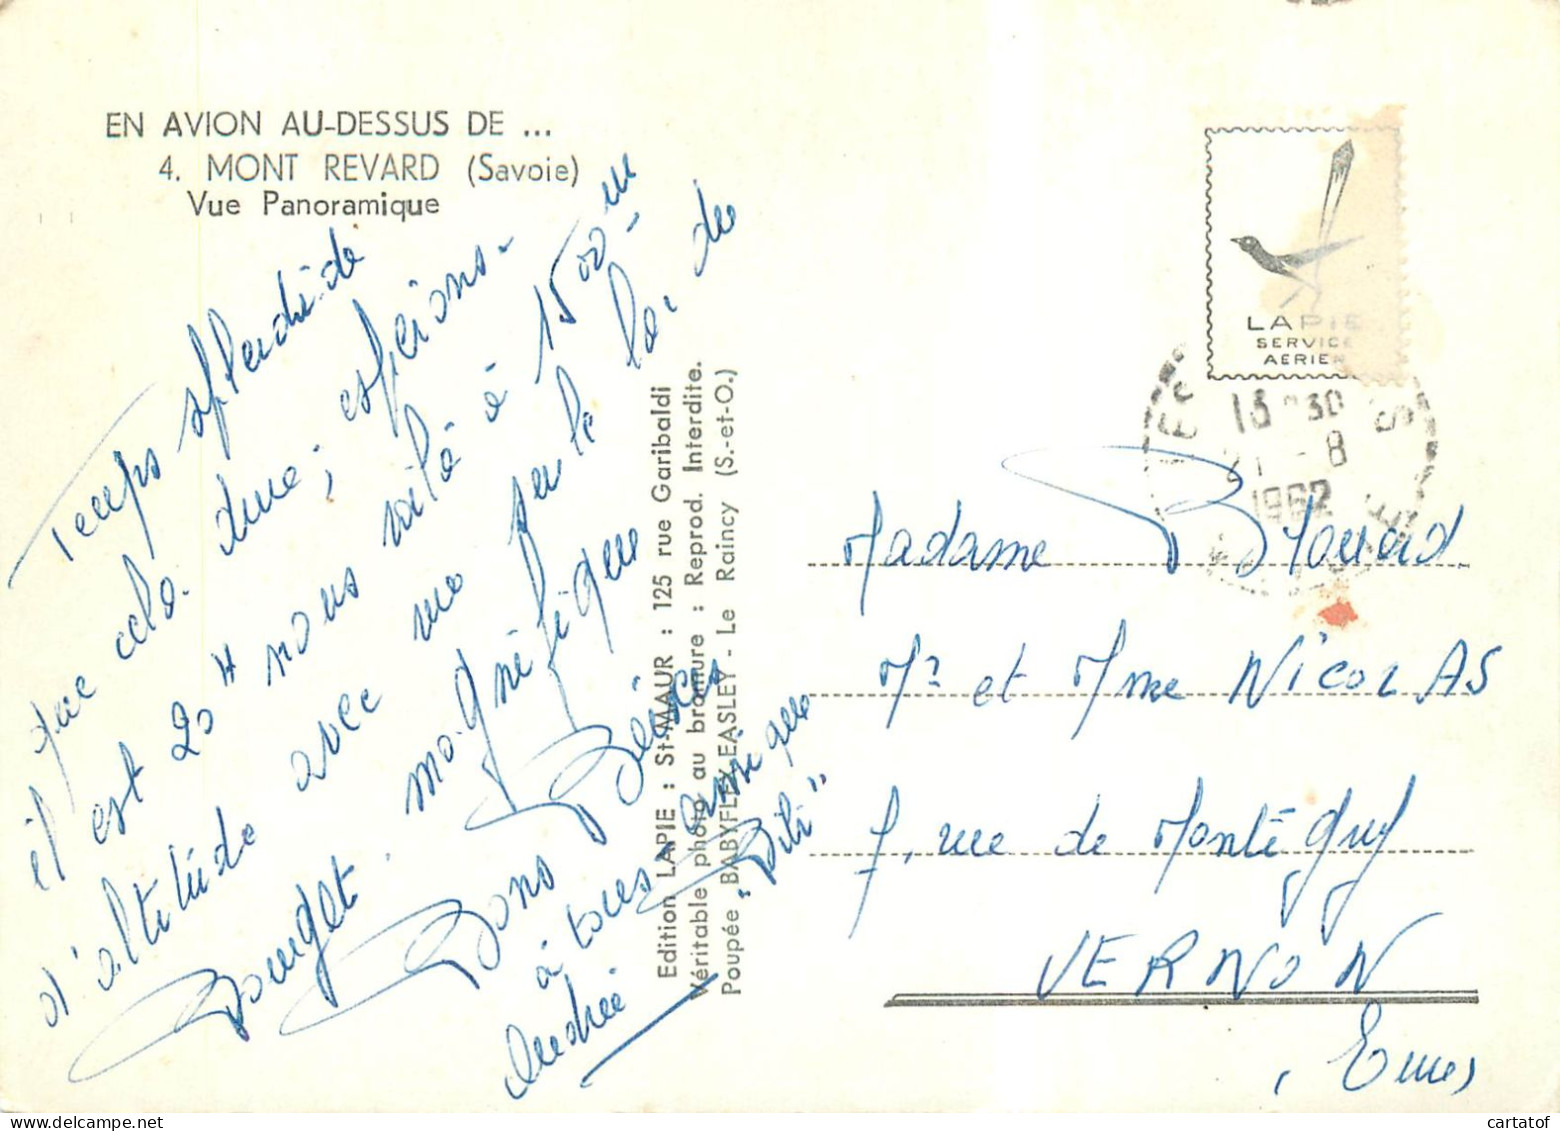 EN AVION AU-DESSUS DE ...
4. MONT REVARD (Savoie)
Vue Panoramique
Temps splendide
que cela dure, espérons-
il est 20 H nous voilà à 1500 m
d'altitude avec vue sur le lac du
Bourget. magnifique
Bons Baisers
à tous ainsi que
Andrée "Titi"
Edition LAPIE : St-MAUR : 125 rue Garibaldi
Véritable photo au bromure : Reprod. Interdite.
Poupée BABYFLEX-EASLEY - Le Raincy (S.-et-O.)
LAPIE
SERVICE
AERIEN
13 H 30
21 - 8
1962
Madame
Mr et Mme NICOLAS
7, rue de Montégny
VERNON
, Eure,
cartatof